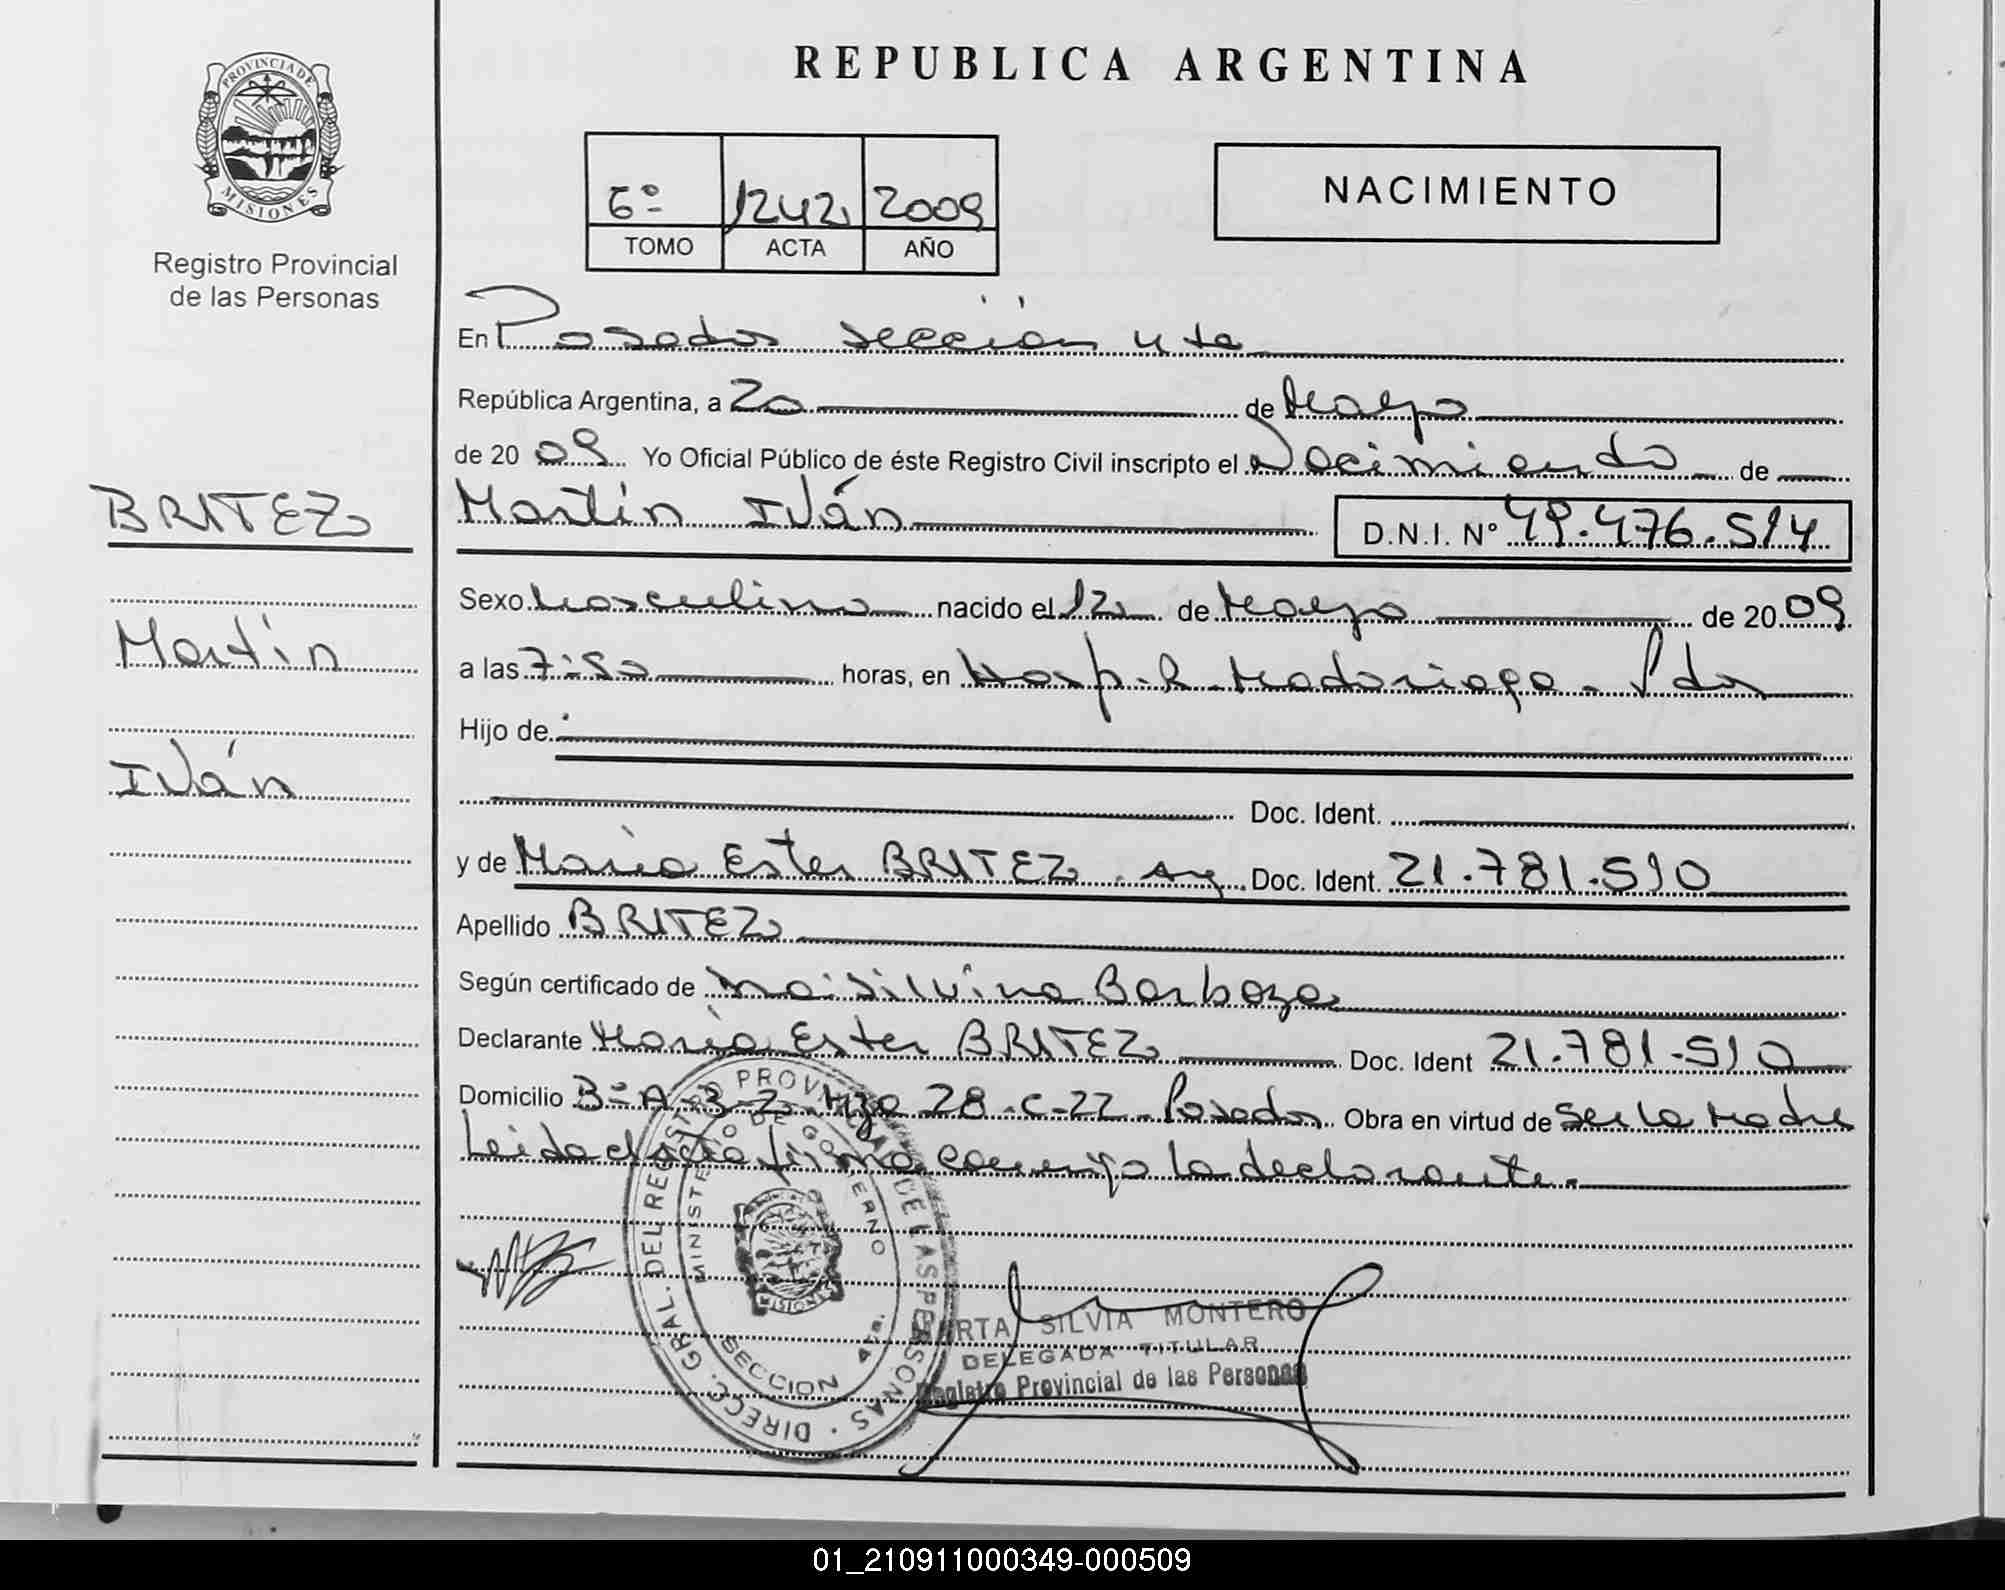 REPUBLICA ARGENTINA
PROVINCIA DE
MISIONES
Registro Provincial
de las Personas
6º 1242 2009
TOMO ACTA AÑO
NACIMIENTO
En Posadas sección 4ta
República Argentina, a 20 de Mayo
de 2009 Yo Oficial Público de éste Registro Civil inscripto el Nacimiento de
BRITEZ
Martín Iván D.N.I. Nº 49.476.514
Sexo Masculino nacido el 12 de Mayo de 2009
Martín
a las 7:50 horas, en Hosp. R. Madariaga - Pdas
Hijo de
Iván
Doc. Ident.
y de María Ester BRITEZ . Arg Doc. Ident. 21.781.510
Apellido BRITEZ
Según certificado de Silvina Barboza
Declarante María Ester BRITEZ Doc. Ident 21.781.510
Domicilio Bº A-3-2 Mza 28 - C-22 - Posadas Obra en virtud de ser la Madre
Leida el acta firma conmigo la declarante.-
DIRECC. GRAL. DEL REGISTRO PROVINCIAL DE LAS PERSONAS
MINISTERIO DE GOBIERNO
MISIONES
SECCION 4ta
SILVIA MONTERO
DELEGADA TITULAR
Registro Provincial de las Personas
01_210911000349-000509